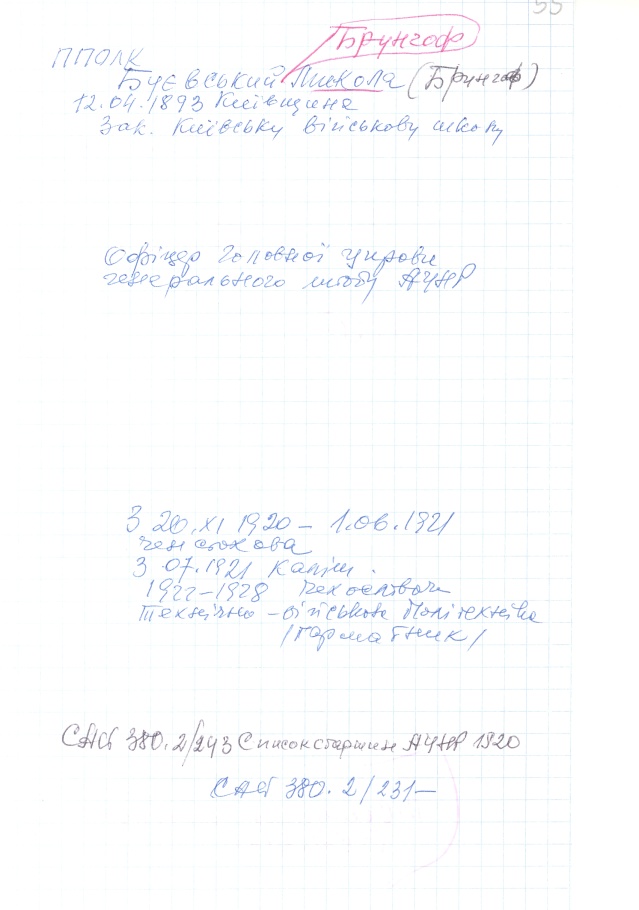 55
Брунгоф
ППОЛК
Буєвський Микола (Брунгоф)
12.04.1893 Київщина
Зак. Київську військову школу
Офіцер Головної управи
генерального штабу АУНР
З 20.XI 1920 – 1.06.1921
Ченстохова
З 07.1921 Каліш.
1922–1928
Технічно – військова Політехніка
/гарматник/
380.2/243 Список старшин АУНР 1920
380.2/231–